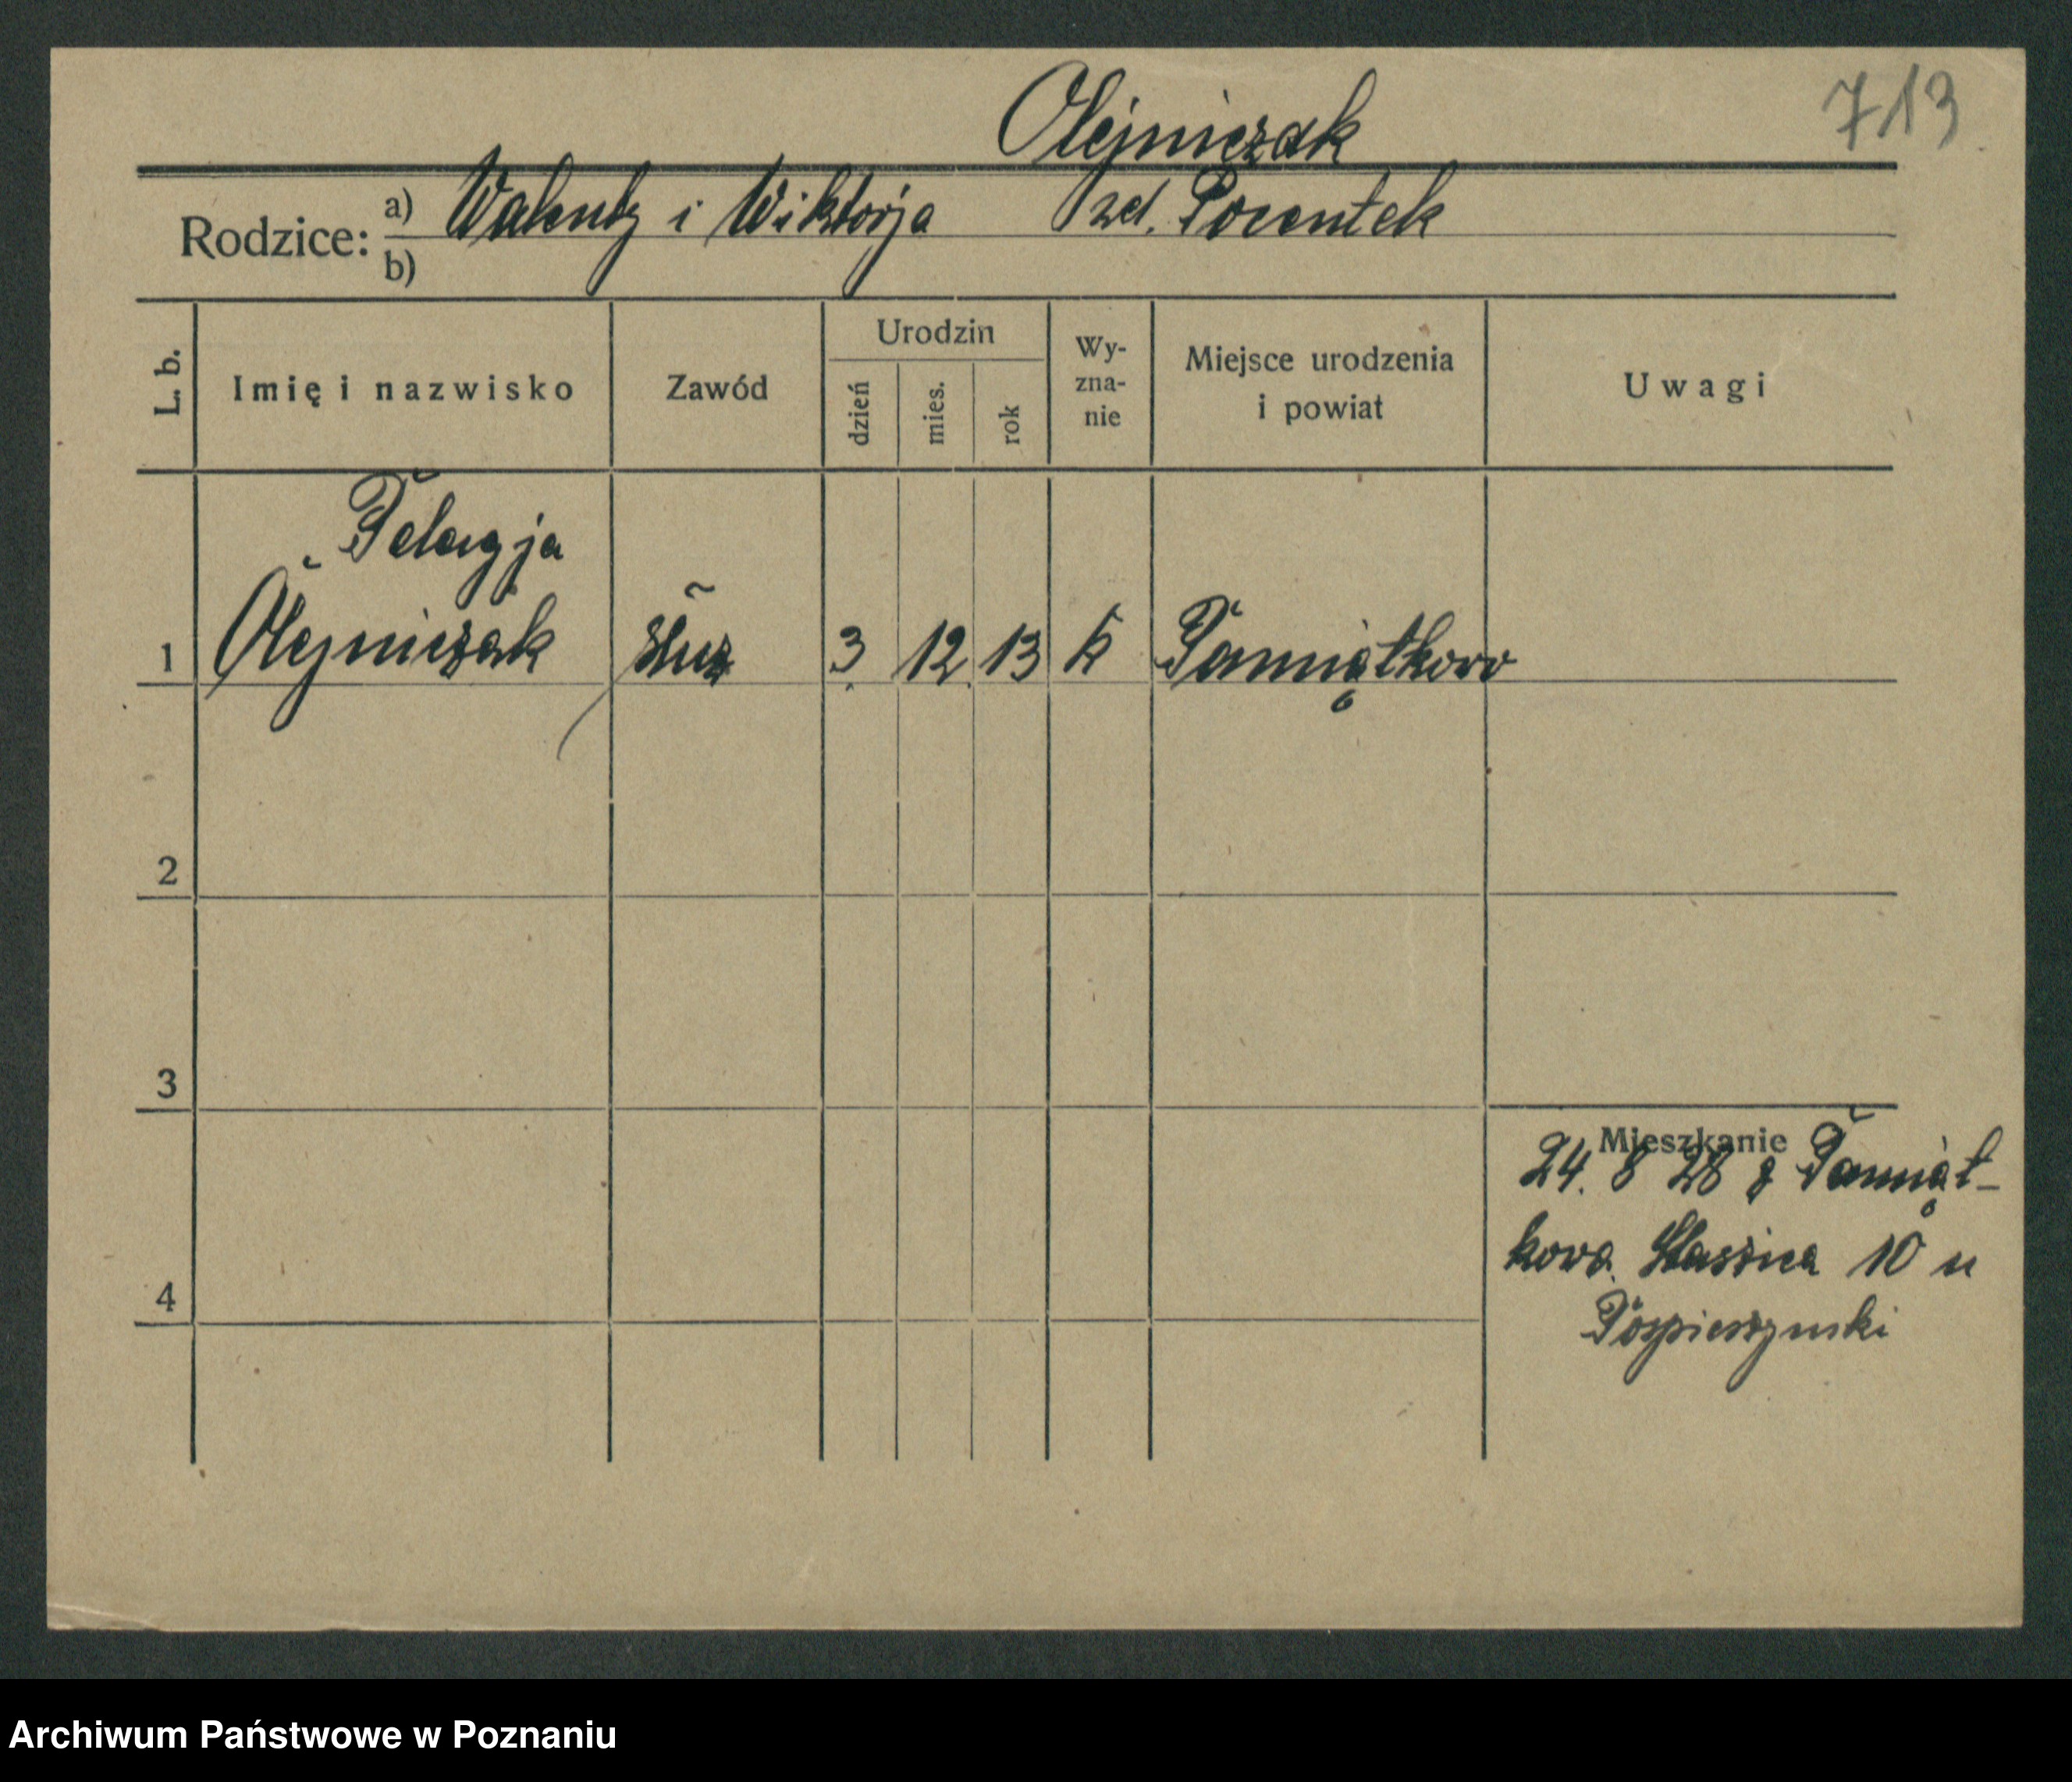 713
Olejniczak
Rodzice: a) Walenty i Wiktorja zd. Pocentek
b)
L. b.
Imię i nazwisko
Zawód
Urodzin
dzień
mies.
rok
Wy-
zna-
nie
Miejsce urodzenia
i powiat
Uwagi
Pelagja
1 Olejniczak służ 3. 12. 13 k Pamiątkowo
2
3
4
Mieszkanie
24. 8 28 z Pamiąt-
kowa. Staszica 10 u
Pospieszynski
Archiwum Państwowe w Poznaniu